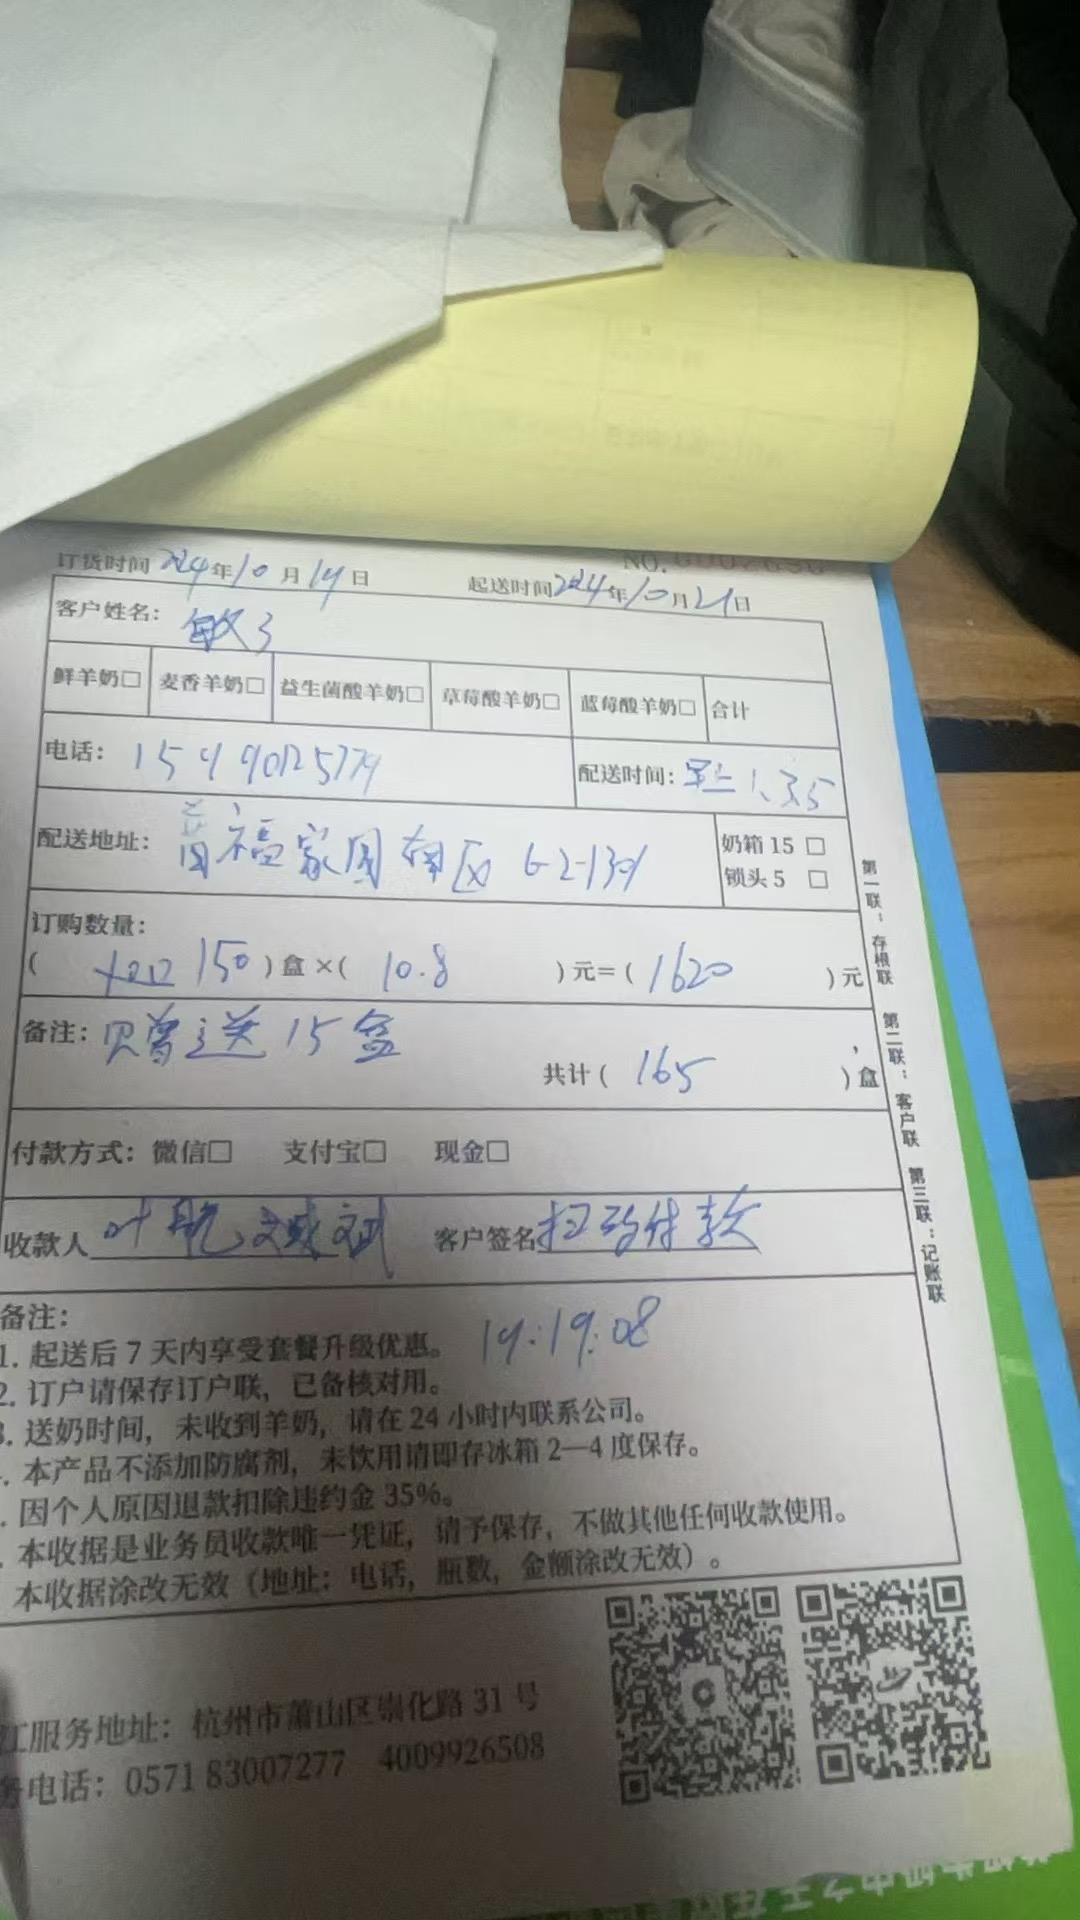 订货时间 2024年10月14日 起送时间2024年10月21日
客户姓名：
鲜羊奶□ 麦香羊奶□ 益生菌酸羊奶□ 草莓酸羊奶□ 蓝莓酸羊奶□ 合计
电话：
配送时间：早上1、3.5
配送地址： 福家园南区 6-2-1301
奶箱 15 □
锁头 5 □
订购数量：
( 150 ) 盒 ×( 10.8 ) 元＝( 1620 ) 元
备注：赠送 15 盒
共计 ( 165 ) 盒
付款方式：微信□ 支付宝□ 现金□
收款人 叶航 客户签名 扫码付款
备注：
19:19:08
1. 起送后 7 天内享受套餐升级优惠。
2. 订户请保存订户联，已备核对用。
3. 送奶时间，未收到羊奶，请在 24 小时内联系公司。
. 本产品不添加防腐剂，未饮用请即存冰箱 2—4 度保存。
. 因个人原因退款扣除违约金 35%。
. 本收据是业务员收款唯一凭证，请予保存，不做其他任何收款使用。
本收据涂改无效（地址：电话，瓶数，金额涂改无效）。
第一联：存根联 第二联：客户联 第三联：记账联
江服务地址：杭州市萧山区崇化路 31 号
务电话：0571 83007277 4009926508